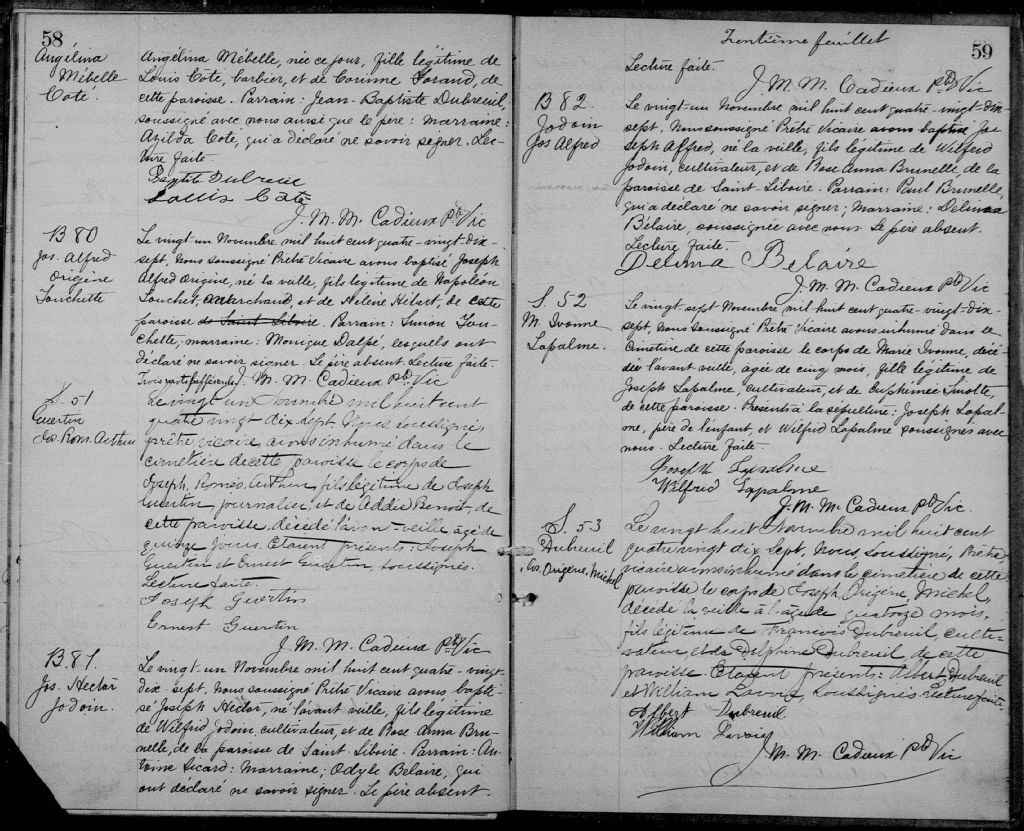 58
Angélina
Mébelle
Coté.
Angélina Mébelle, née ce jour, fille légitime de
Louis Coté, barbier, et de Corinne Forand, de
cette paroisse. Parrain: Jean-Baptiste Dubreuil,
soussigné avec nous ainsi que le père: Marraine:
Azilda Coté, qui a déclaré ne savoir signer. Lec-
ture faite.
Baptite Dubreuil
Louis Coté
J. M. M. Cadieux Ptre Vic
B 80
Jos. Alfred
Origine
Touchette
Le vingt-un Novembre mil huit cent quatre-vingt-dix-
sept, Nous soussigné Prêtre Vicaire avons baptisé Joseph
Alfred Origine, né la veille, fils légitime de Napoléon
Touchet, marchand, et de Helène Hébert, de cette
paroisse de Saint Liboire. Parrain: Simion Tou-
chette; marraine: Monique Dalpé, lesquels ont
déclaré ne savoir signer. Le père absent Lecture faite.
Trois J. M. M. Cadieux Ptre Vic
S. 51
Guertin
Jos. Rom. Arthur
Le vingt un Novembre mil huit cent
quatre vingt dix sept, Nous, soussigné,
prêtre vicaire avons inhumé dans le
cimetière de cette paroisse le corps de
Joseph, Roméo, Arthur, fils légitime de Joseph
Guertin journalier, et de Addis Benoit, de
cette paroisse, décédé l'avant-veille âgé de
quinze jours. Etaient présents: Joseph
Guertin et Ernest Guertin, soussignés.
Lecture faite.
Joseph Guertin
Ernest Guertin
J. M. M. Cadieux Ptre Vic
B. 81.
Jos. Hector
Jodoin.
Le vingt-un Novembre mil huit cent quatre-vingt-
dix-sept, Nous soussigné Prêtre Vicaire avons bapti-
sé Joseph Hector, né l'avant veille, fils légitime
de Wilfrid Jodoin, cultivateur, et de Rose-Anna Bru-
nelle, de la paroisse de Saint-Liboire. Parrain: An-
toine Sicard: Marraine; Odyle Belaire, qui
ont déclaré ne savoir signer. Le père absent.
Trentième feuillet
59
Lecture faite.
J. M. M. Cadieux Ptre Vic
B 82.
Jodoin
Jos Alfred
Le vingt-un Novembre mil huit cent quatre-vingt-dix
sept, Nous soussigné Prêtre Vicaire avons baptisé Jo-
seph Alfred, né la veille, fils légitime de Wilfrid
Jodoin, cultivateur, et de Rose Anna Brunelle, de la
paroisse de Saint-Liboire. Parrain: Paul Brunelle,
qui a déclaré ne savoir signer; Marraine: Delima
Bélaire, soussignée avec nous. Le père absent.
Lecture faite.
Delima Belaire
J. M. M. Cadieux Ptre Vic
S. 52
M. Ivonne
Lapalme.
Le vingt-sept Novembre mil huit cent quatre-vingt-dix-
sept, Nous soussigné Prêtre Vicaire avons inhumé dans le
cimetière de cette paroisse le corps de Marie Ivonne, décé-
dée l'avant veille, agée de cinq mois, fille légitime de
Joseph Lapalme, cultivateur, et de Euphémie Smotte,
de cette paroisse. Présents à la sépulture: Joseph Lapal-
me, père de l'enfant, et Wilfrid Lapalme soussignés avec
nous. Lecture faite.
Joseph Lapalme
Wilfrid Lapalme
J. M. M. Cadieux Ptre Vic.
S. 53
Dubreuil
Jos. Origène, Michel
Le vingt huit Novembre mil huit cent
quatre vingt dix sept, Nous, soussigné, Prêtre
vicaire avons inhumé dans le cimetière de cette
paroisse le corps de Joseph, Origène, Michel,
décédé la veille à l'âge de quatorze mois,
fils légitime de Francois Dubreuil, culti-
vateur et de Delphine Dubreuil de cette
paroisse. Etaient présents: Albert Dubreuil
et William Lavoie, soussignés. Lecture faite.
Albert Dubreuil
William Lavoie
J. M. M. Cadieux Ptre Vic